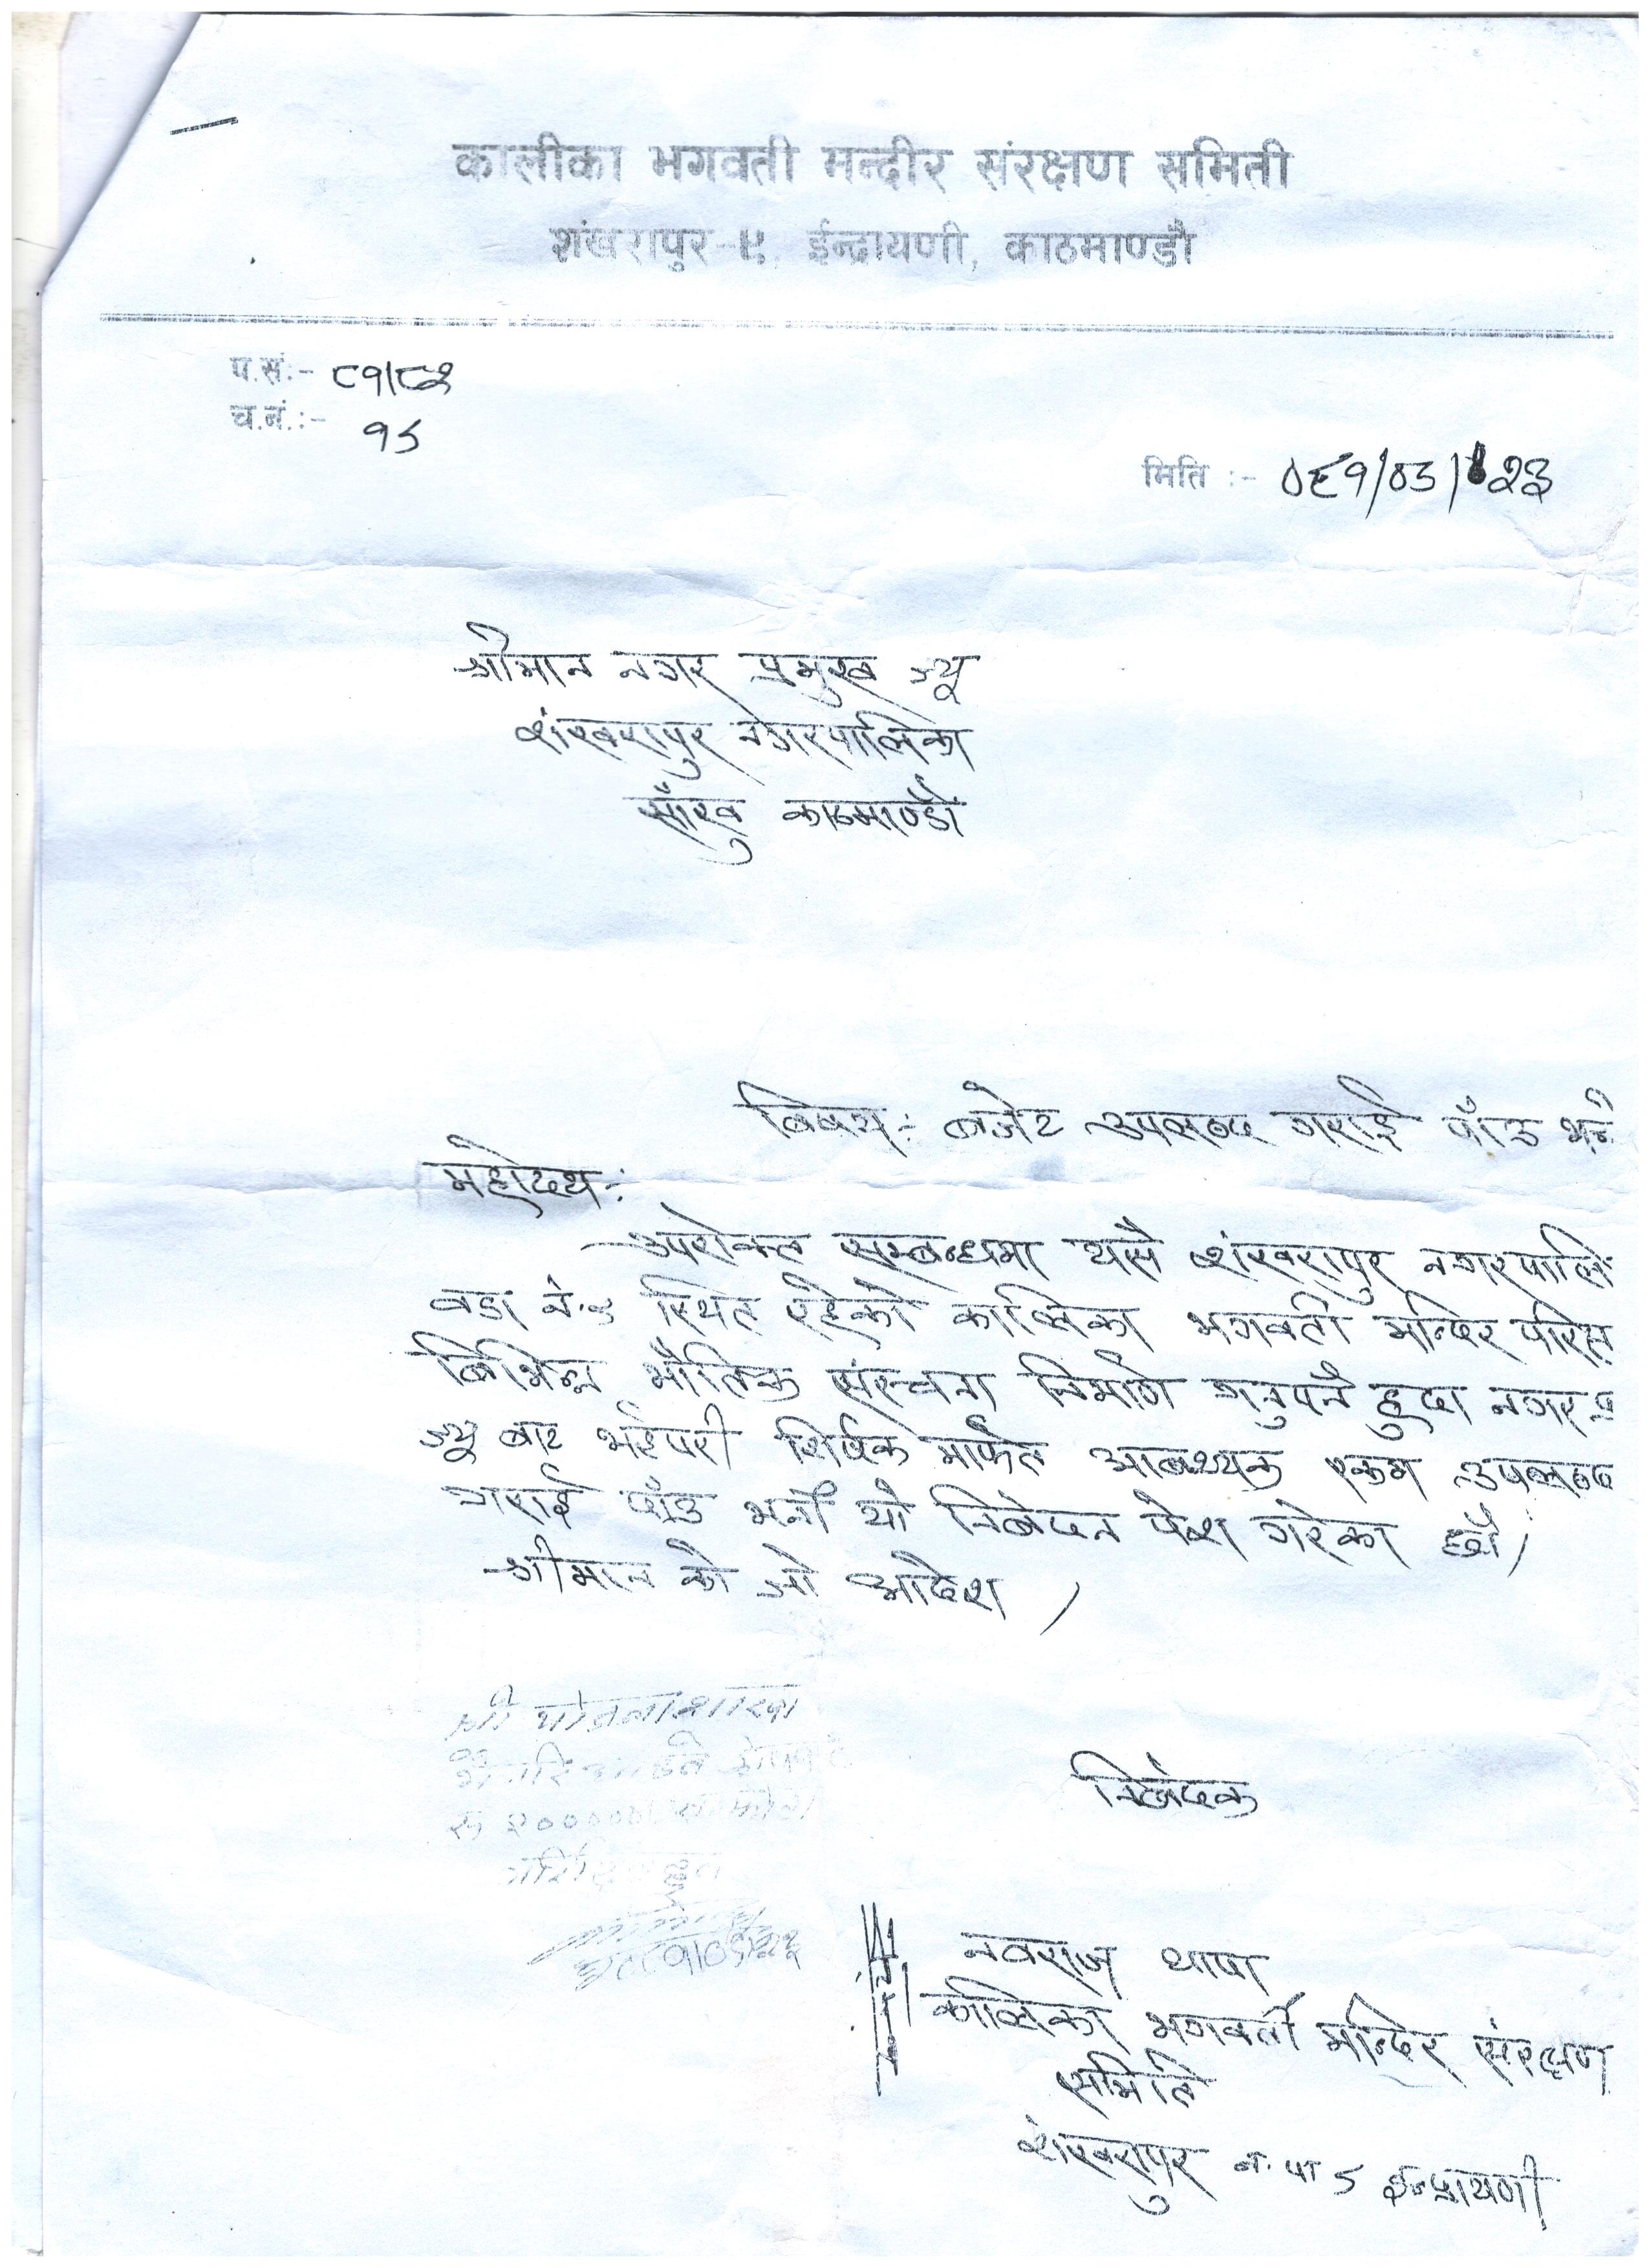 कालीका भगवती मन्दीर संरक्षण समिती
शंखरापुर-५, ईन्द्रायणी, काठमाण्डौ
प.सं:- ८१/८२
च.नं.:- १५
मिति :- ०८१/०५/२३
श्रीमान नगर प्रमुख ज्यू
शंखरापुर नगरपालिका
साँखु काठमाण्डौ
विषय:- बजेट उपलब्ध गराई पाँउ भन्ने
महोदय:
उपरोक्त सम्बन्धमा यसै शंखरापुर नगरपालि
वडा नं. ५ स्थित रहेको कालिका भगवती मन्दिर परिस
विभिन्न भौतिक संरचना निर्माण गर्नुपर्ने हुदा नगर प्र
ज्यू बाट भईपरी शिर्षक मार्फत आवश्यक रकम उपलब्ध
गराई पाँउ भनी यो निवेदन पेश गरेका छौ।
श्रीमान को जो आदेश।
श्री योजना शाखा
रु २०००००।
निवेदक
नवराज थापा
कालिका भगवती मन्दिर संरक्षण
समिति
शंखरापुर न. पा ५ ईन्द्रायणी